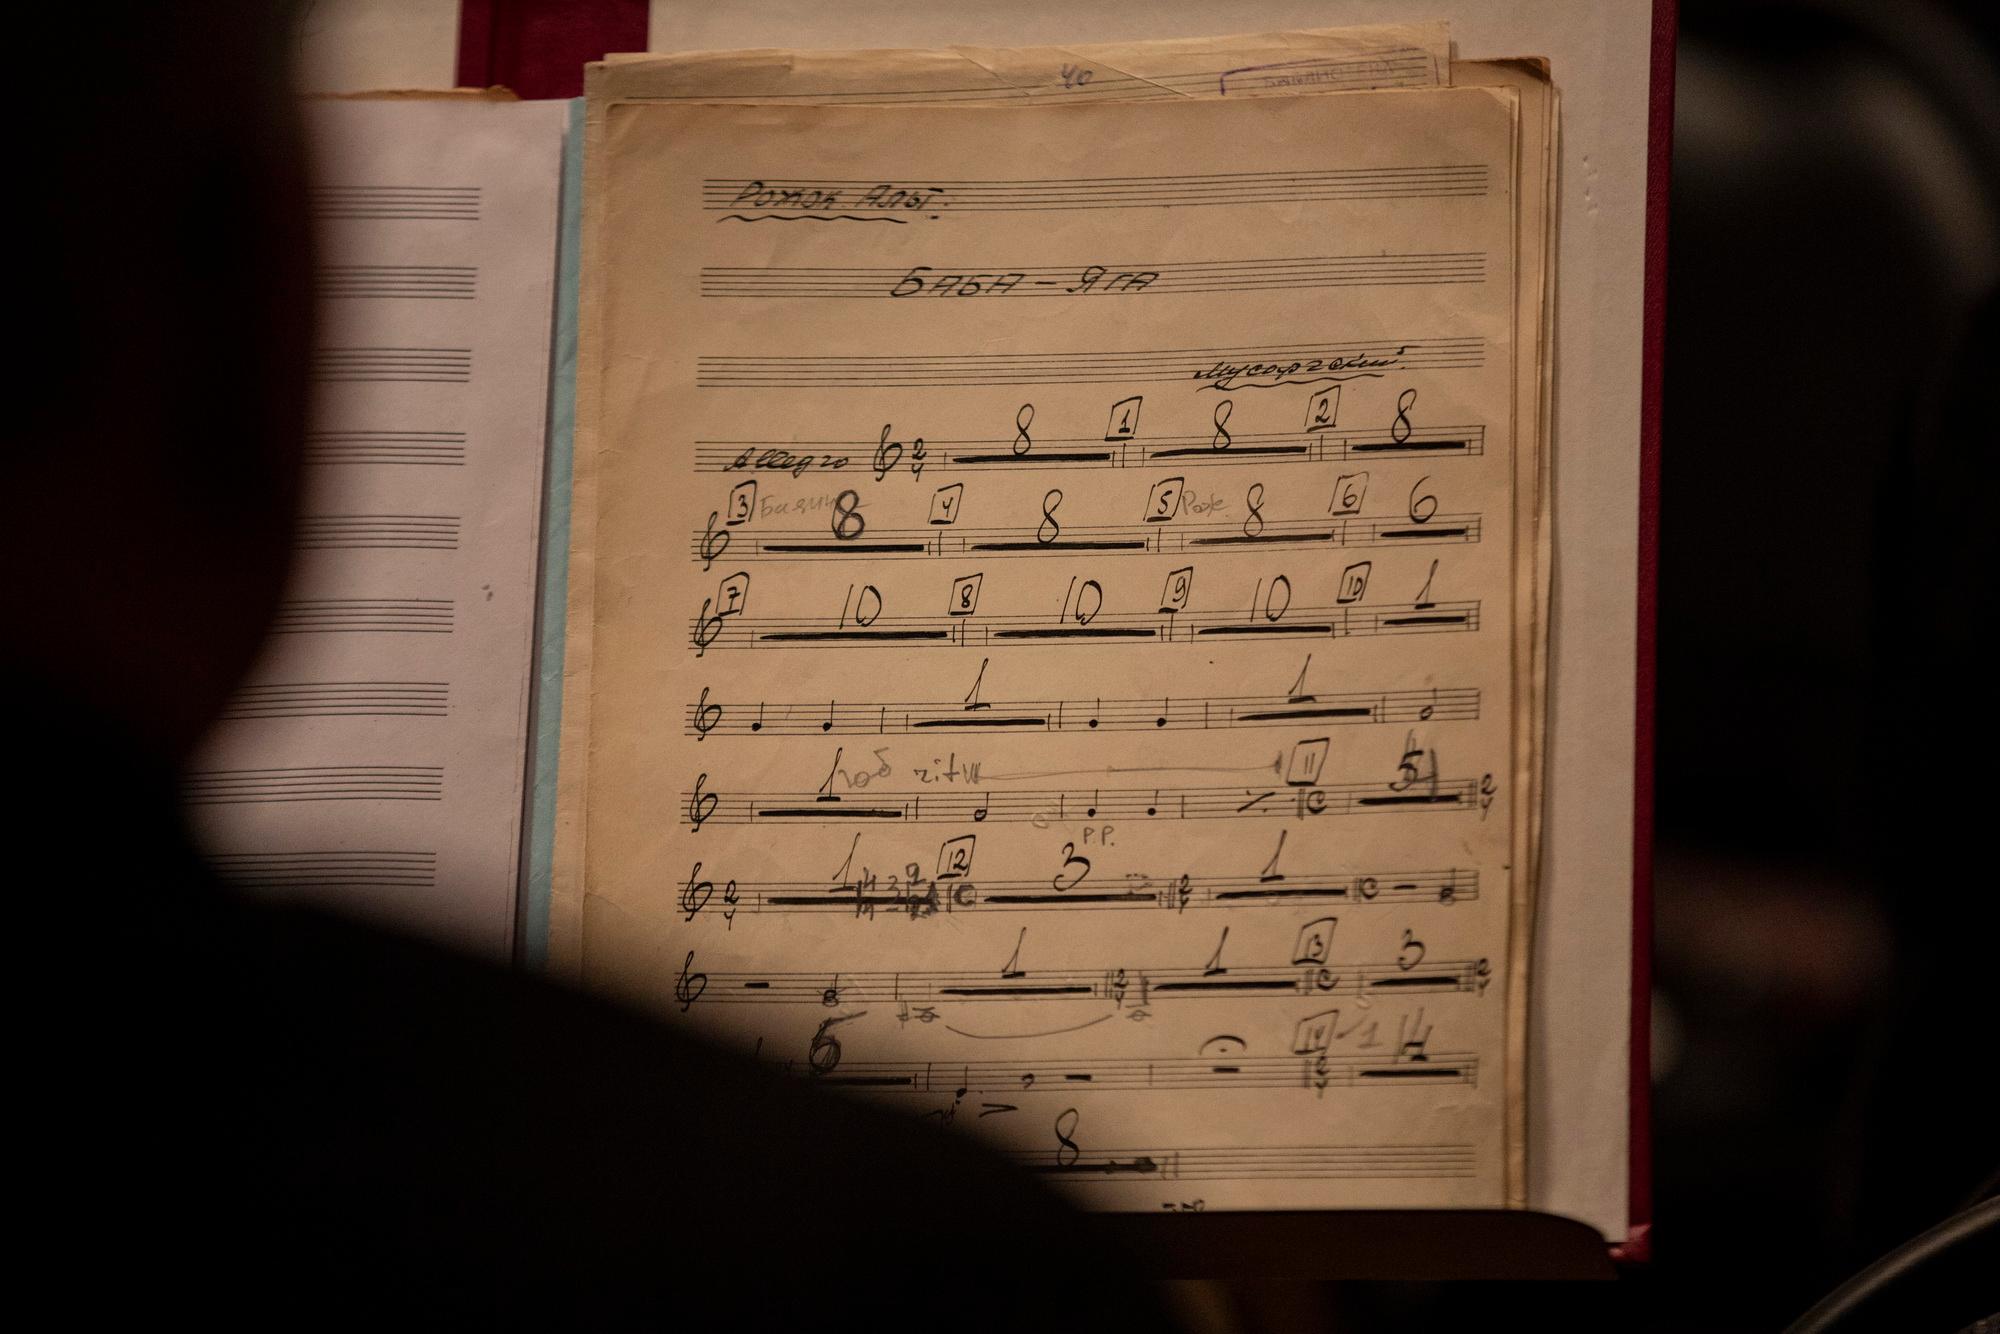 40
Рожок Альт.
БАБА-ЯГА
Мусоргский.
Allegro 2 4 8 1 8 2 8
3 Баян 8 4 8 5 Рож. 8 6 6
7 10 8 10 9 10 10 1
1 1
1 ritu 11 5
P.P.
2 4 1 12 3 2 4 1
1 2 4 1 13 3 2 4
6 14 1 4
8